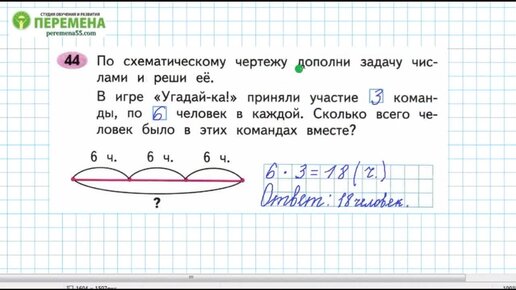 СТУДИЯ ОБУЧЕНИЯ И РАЗВИТИЯ
ПЕРЕМЕНА
peremena55.com
44 По схематическому чертежу дополни задачу чис-
лами и реши её.
В игре «Угадай-ка!» приняли участие 3 коман-
ды, по 6 человек в каждой. Сколько всего че-
ловек было в этих командах вместе?
6 ч. 6 ч. 6 ч.
?
6 · 3 = 18 (ч.)
Ответ: 18 человек.